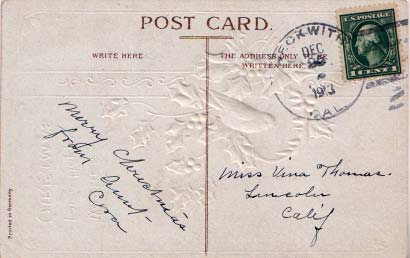 POST CARD.
WRITE HERE
THE ADDRESS ONLY
WRITTEN HERE
BECKWITH
DEC
1913
CAL.
U.S. POSTAGE
1 CENT 1
Merry Christmas
from Aunt
Cora
Miss Vina Thomas.
Lincoln
Calif
Printed in Germany